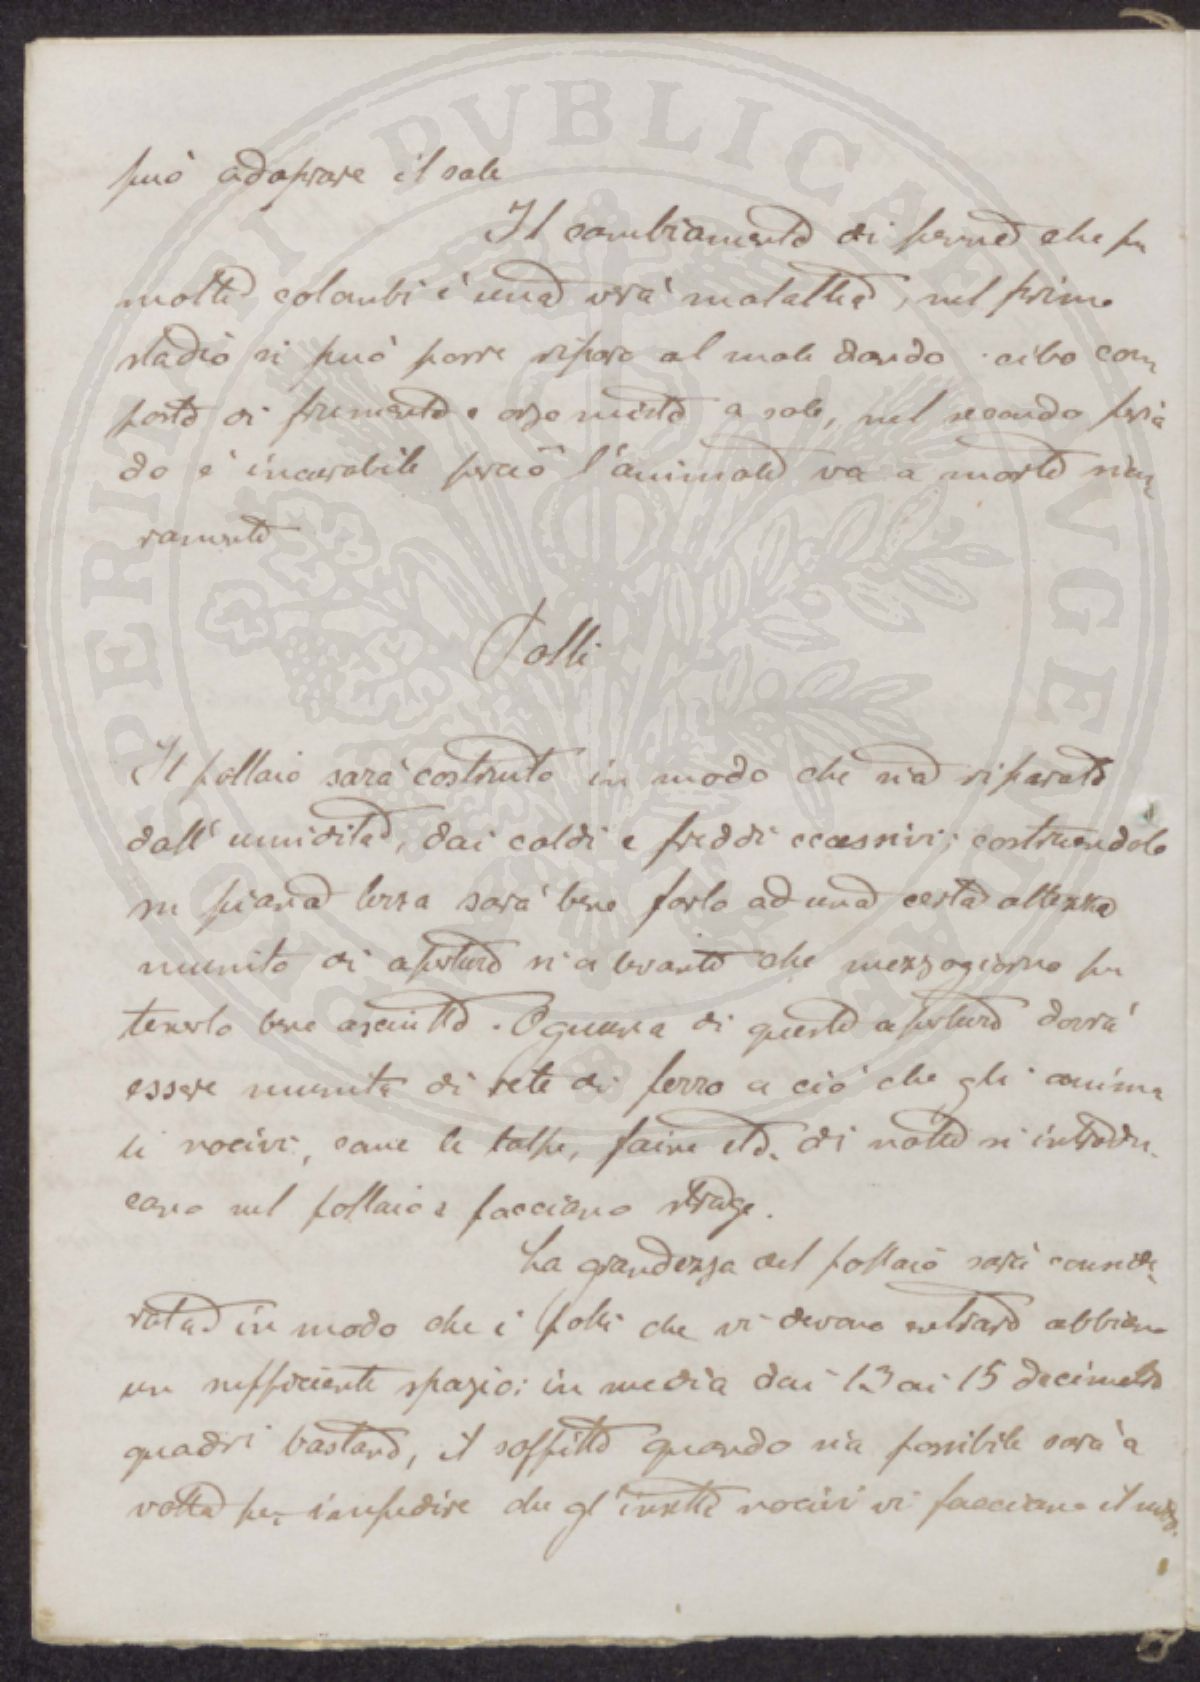 può adoprare il sale
Il cambiamento di penne che per
molti colombi è una vera malattia, nel primo
stadio si può porre riparo al male dando cibo com
posto di frumento e orzo misto a sale, nel secondo perio
do è incurabile perciò l'animale va a morte sicu
ramente
Polli
Il pollaio sarà costruito in modo che sia riparato
dall'umidità, dai caldi e freddi eccessivi; costruendolo
su piana terra sarà bene farlo ad una certa altezza
munito di aperture si a levante che mezzogiorno per
tenerlo bene asciutto. Ognuna di queste aperture dovrà
essere munita di rete di ferro a ciò che gli anima
li nocivi, come le talpe, faine etc. di notte si introdu
cano nel pollaio e facciano strage.
La grandezza del pollaio sarà conside
rata in modo che i polli che vi devono entrare abbiano
un sufficiente spazio: in media dai 13 ai 15 decimetri
quadri bastano, il soffitto quando sia possibile sarà a
volta per impedire che gl'insetti nocivi vi facciano il nido.
PROSPERITATI PVBLICAE AVGENDAE